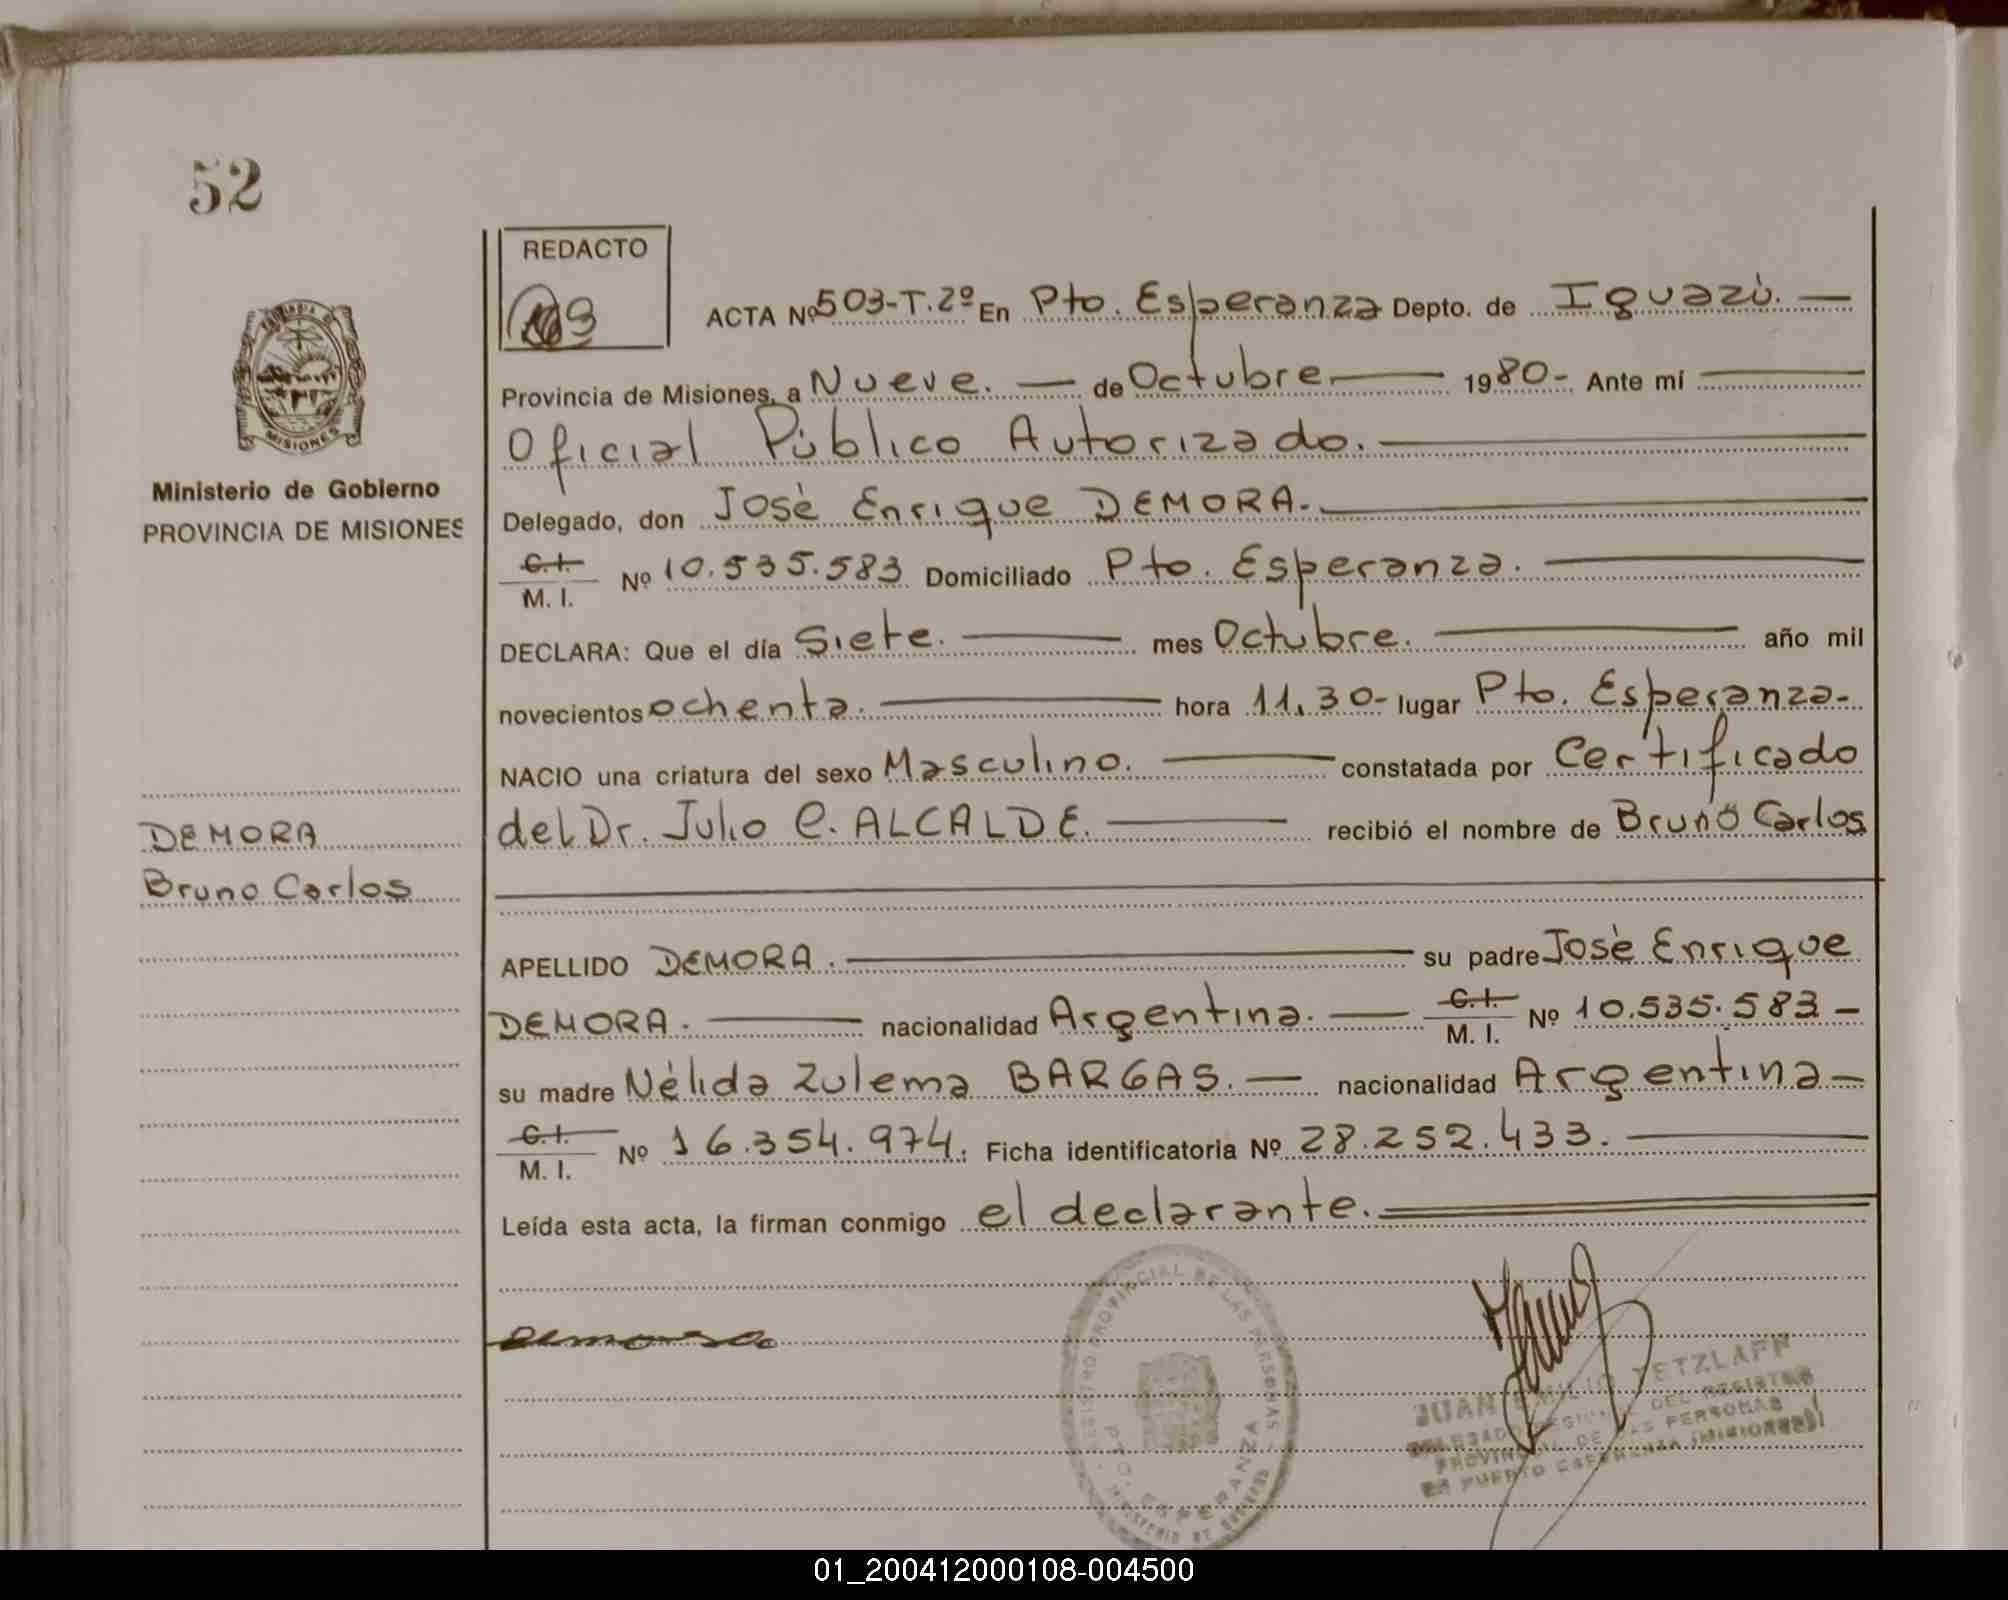 52
REDACTO
ACTA Nº 503-T.2º En Pto. Esperanza Depto. de Iguazú.
Provincia de Misiones, a Nueve. de Octubre 1980- Ante mí
Oficial Público Autorizado.
Delegado, don José Enrique DEMORA.
C.I. M.I. Nº 10.535.583 Domiciliado Pto. Esperanza.
DECLARA: Que el día Siete. mes Octubre. año mil
novecientos ochenta. hora 11,30- lugar Pto. Esperanza-
NACIO una criatura del sexo Masculino. constatada por Certificado
del Dr. Julio C. ALCALDE. recibió el nombre de Bruno Carlos
APELLIDO DEMORA. su padre José Enrique
DEMORA. nacionalidad Argentina. C.I. M.I. Nº 10.535.583-
su madre Nélida Zulema BARGAS. nacionalidad Argentina
C.I. M.I. Nº 16.354.974. Ficha identificatoria Nº 28.252.433.
Leída esta acta, la firman conmigo el declarante.
MISIONES
Ministerio de Gobierno
PROVINCIA DE MISIONES
DEMORA
Bruno Carlos
REGISTRO PROVINCIAL DE LAS PERSONAS
PTO. ESPERANZA
MINISTERIO DE GOBIERNO
JUAN EMILIO TETZLAFF
DELEGADO REGIONAL DEL REGISTRO
PROVINCIAL DE LAS PERSONAS
EN PUERTO ESPERANZA (MISIONES)
01_200412000108-004500